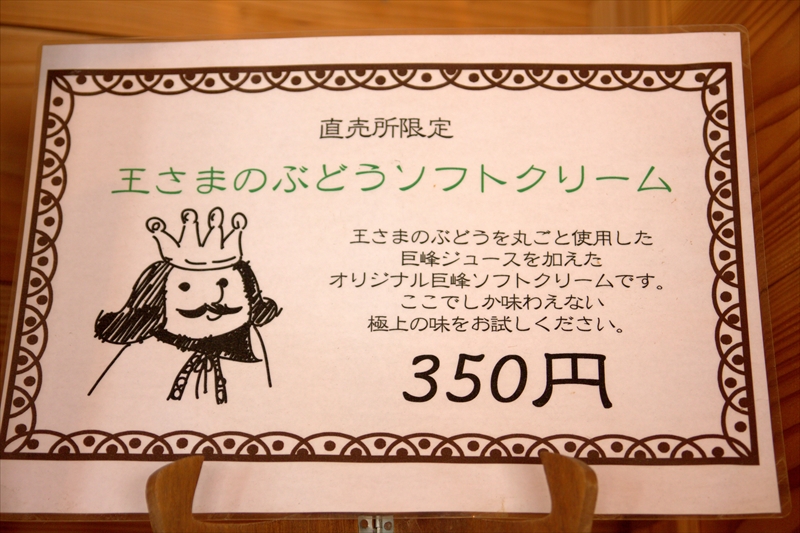 直売所限定
王さまのぶどうソフトクリーム
王さまのぶどうを丸ごと使用した
巨峰ジュースを加えた
オリジナル巨峰ソフトクリームです。
ここでしか味わえない
極上の味をお試しください。
350円